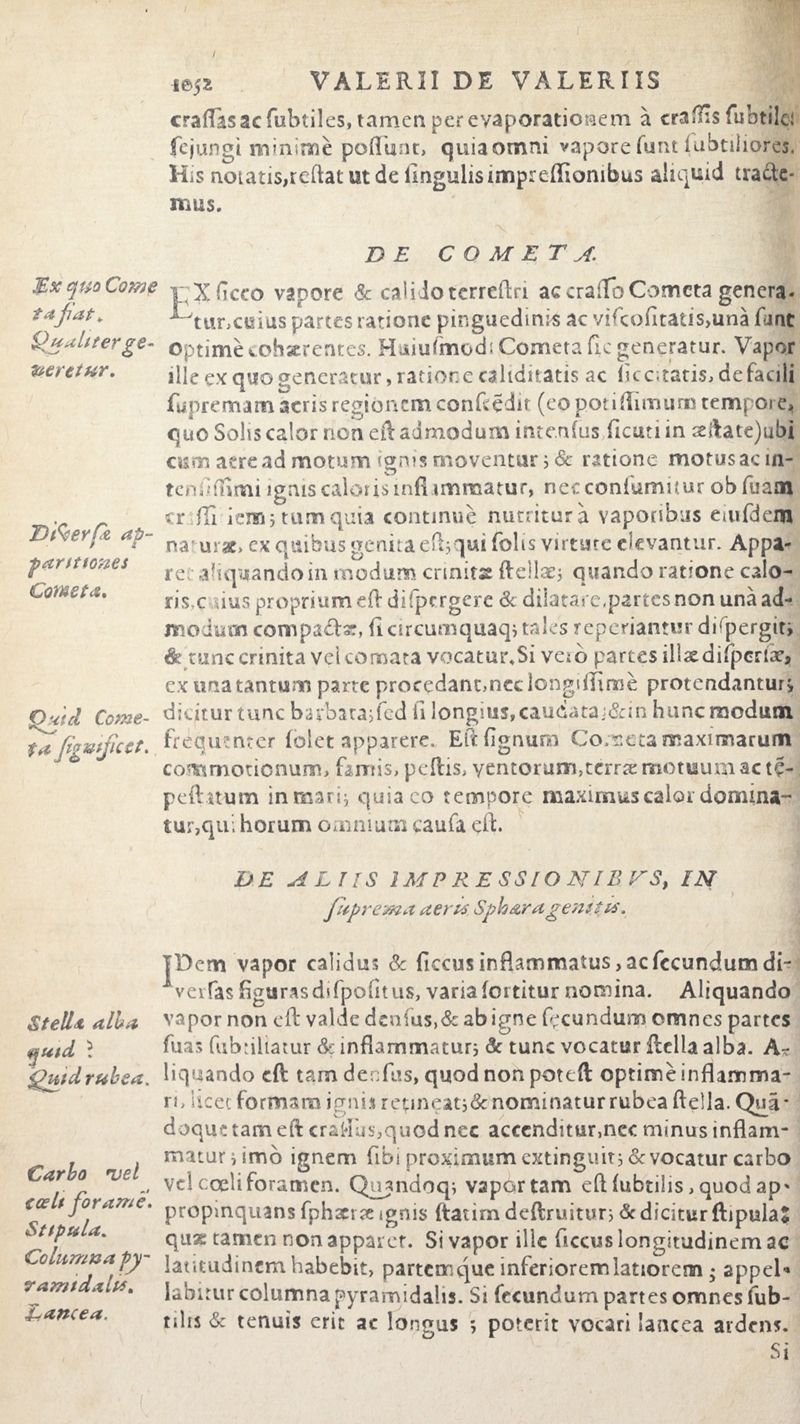 1052 VALERII DE VALERIIS
craſſas ac ſubtiles, tamen per evaporationem à craſſis ſubtiles
ſejungi minimè poſſunt, quia omni vapore ſunt ſubtiliores.
His notatis, reſtat ut de ſingulis impreſſionibus aliquid tracte-
mus.
DE COMETA.
Ex quo Come
ta fiat.
Qualiter ge-
neretur.
EX ſicco vapore & calido terreſtri ac craſſo Cometa genera-
tur, cuius partes ratione pinguedinis ac viſcoſitatis, unà ſunt
optimè cohærentes. Huiuſmodi Cometa ſic generatur. Vapor
ille ex quo generatur, ratione caliditatis ac ſiccitatis, de facili
ſupremam aëris regionem conſcēdit (eo potiſſimum tempore,
quo Solis calor non eſt admodum intenſus ſicuti in æſtate) ubi
cum aere ad motum ignis moventur; & ratione motus ac in-
tenſiſſimi ignis caloris inflammatur, nec conſumitur ob ſuam
craſſitiem; tum quia continuè nutritur à vaporibus eiuſdem
naturæ, ex quibus genita eſt; qui ſolis virtute elevantur. Appa-
ret aliquando in modum crinitæ ſtellæ; quando ratione calo-
ris, cuius proprium eſt diſpergere & dilatare, partes non unà ad-
modum compactæ, ſi circumquaq; tales reperiantur diſpergit;
& tunc crinita vel comata vocatur. Si verò partes illæ diſperſæ,
ex una tantum parte procedant, nec longiſſimè protendantur;
dicitur tunc barbata; ſed ſi longius, caudata; & in hunc modum
frequenter ſolet apparere. Eſt ſignum Cometa maximarum
commotionum, famis, peſtis, ventorum, terræ motuum ac tē-
peſtatum in mari; quia eo tempore maximus calor domina-
tur, qui horum omnium cauſa eſt.
Diverſæ ap-
paritiones
Cometæ.
Quid Come-
ta ſignificet.
DE ALIIS IMPRESSIONIBVS, IN
ſuprema aeris Sphæra genitis.
IDem vapor calidus & ſiccus inflammatus, ac ſecundum di-
verſas figuras diſpoſitus, varia ſortitur nomina. Aliquando
vapor non eſt valde denſus, & ab igne ſecundum omnes partes
ſuas ſubtiliatur & inflammatur; & tunc vocatur ſtella alba. A-
liquando eſt tam denſus, quod non poteſt optimè inflamma-
ri, licet formam ignis retineat; & nominatur rubea ſtella. Quā-
doque tam eſt craſſus, quod nec accenditur, nec minus inflam-
matur; imò ignem ſibi proximum extinguit; & vocatur carbo
vel cœli foramen. Quandoq; vapor tam eſt ſubtilis, quod ap-
propinquans ſphæræ ignis ſtatim deſtruitur; & dicitur ſtipula;
quæ tamen non apparet. Si vapor ille ſiccus longitudinem ac
latitudinem habebit, partemque inferiorem latiorem; appel-
labitur columna pyramidalis. Si ſecundum partes omnes ſub-
tilis & tenuis erit ac longus; poterit vocari lancea ardens.
Stella alba
quid?
Quid rubea.
Carbo vel
cœli forame.
Stipula.
Columna py-
ramidalis.
Lancea.
Si